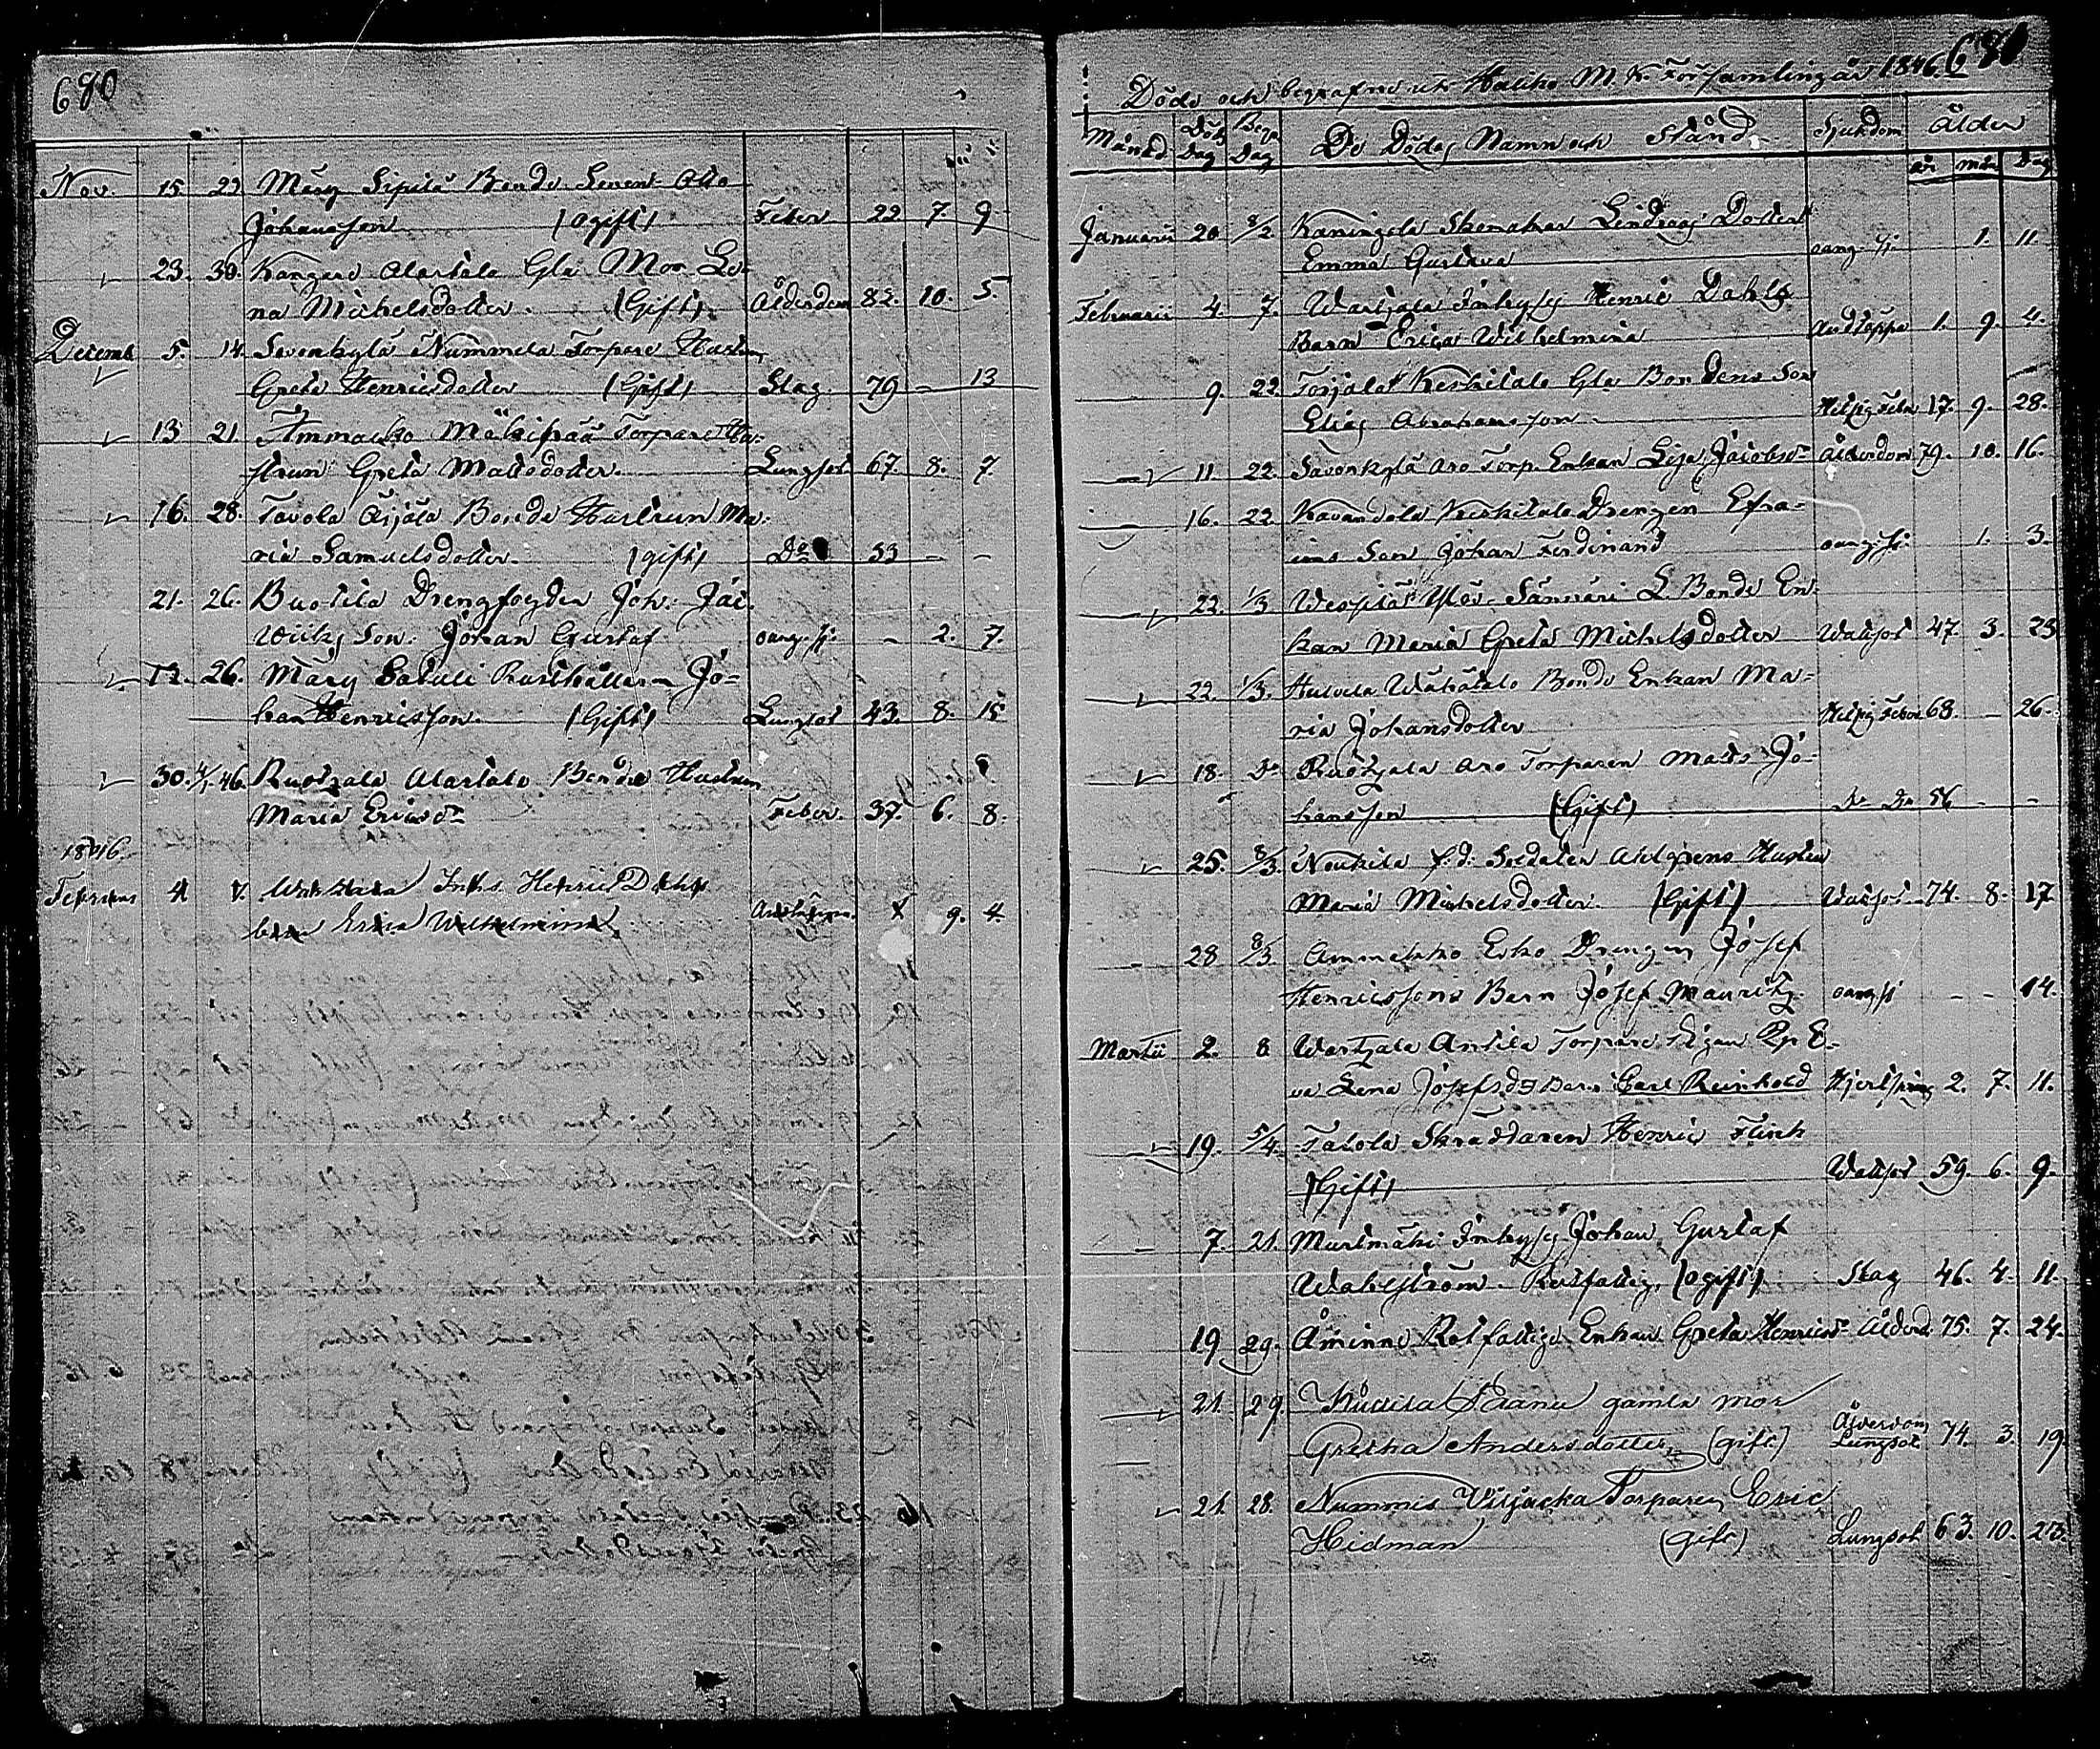 680
Nov. 15 22 Märy Sipilä Bonde Sonen Otto
Johansson (ogift) Feber 22 7. 9
23. 30. Kangare Alastalo Gla Mor Le-
na Michelsdotter. (Gift). Ålderdom 82. 10. 5.
Decemb 5. 14. Savonkylä Nummela Torpare Hustru
Greta Henricsdotter (Gift) Slag 79 — 13
13 21. Ammacko Mäkipää Torpare Hu-
strun Greta Mattsdotter. Lungsot 67. 8. 7.
16. 28. Tavola Äijälä Bonde Hustrun Ma-
ria Samuelsdotter. (gift) Do 53 — —
21. 26. Buotila Drengfogden Joh: Jac.
Wiiks Son. Johan Gustaf oang. sj. — 2. 7.
12. 26. Märy Satuli Rusthållaren Jo-
han Henricsson. (Gift) Lungsot 43. 8. 15
30. 4/1 46. Ruotzala Alastalo Bonde Hustrun
Maria Ericsdr Feber. 37. 6. 8.
1846.
Februari 4 7. Wartzala Inhs. Henric Dahls
barn Erica Wilhelmina Andtäppa. 1 9. 4.
Döde och begrafne uti Haliko M. K. Församling år 1846. 681
Månad Döds Dag Begr. Dag De Dödas Namn och Stånd Sjukdom Ålder
år mån Dag
Januarii 20 8/2 Kaningela Skomakar Lindroos Dotter
Emma Gustava oang. sj. 1. 11.
Februarii 4. 7. Wartzala Inhyss Henric Dahls
Barn Erica Wilhelmina Andtäppa 1. 9. 4.
9. 22. Torjala Keskitalo Gla Bondens Son
Elias Abrahamsson Hetsig Feber 17. 9. 28.
11. 22. Savonkylä Aro Torp. Enkan Lisa Jacobsdr Ålderdom 79. 10. 16.
16. 22 Kavandola Keskitalo Drengen Efra-
ims Son Johan Ferdinand oang. sj. 1. 3.
22. 1/3 Wespilä Yliss-Sännäri L. Bonde En-
kan Maria Greta Michelsdotter Wattsot 47. 3. 23
22. 1/3. Hulvela Wähätalo Bonde Enkan Ma-
ria Johansdotter Hetsig Feber 68. — 26.
18. Do Ruotzala Aro Torparen Matts Jo-
hansson (Gift) Do Do 56 — —
25. 8/3. Noukila f.d. Soldaten Ahlgrens Hustru
Maria Michelsdotter. (Gift) Wattsot 74. 8. 17
28 8/3. Ammekko Erko Drengen Josef
Henricssons Barn Josef Mauritz oang. sj — — 14.
Martii 2. 8 Wartzala Antila Torpare Pigan E-
va Lena Josefsdr Barn Carl Reinhold Hjertspräng 2. 7. 11.
19. 5/4. Tavola Skräddaren Henric Flink
(Gift) Wattsot 59. 6. 9.
7. 21. Murtmäki Inhyss Johan Gustaf
Wahlström Rotfattig. (ogift) Slag 46. 4. 11.
19 29. Åminne Rotfattige Enkan Greta Henricsdr Ålderd. 75. 7. 24.
21. 29. Kuttila Paanu gamla mor
Gretha Andersdotter (gift) Ålderdom Lungsot 74. 3. 19
21. 28. Nummis Viljacka Torparen Eric
Hidman (gift) Lungsot 63. 10. 27